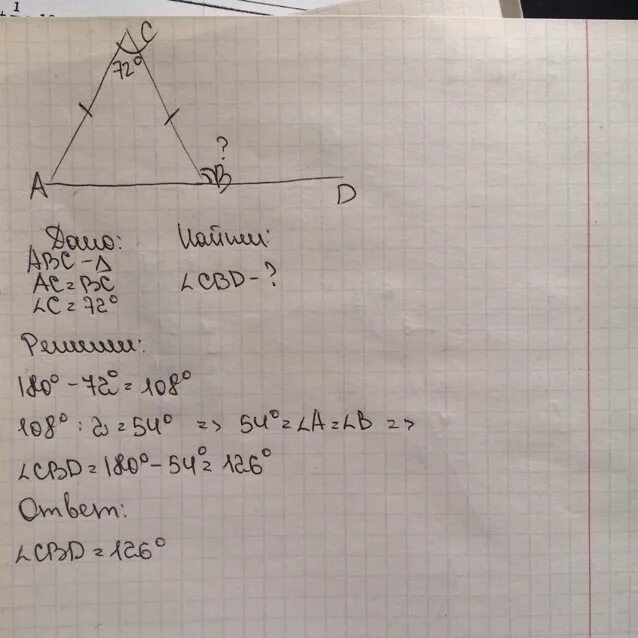 C
72°
?
A B D
Дано: Найти:
ABC – Δ
AC = BC ∠CBD – ?
∠C = 72°
Решение:
180° – 72° = 108°
108° : 2 = 54° => 54° = ∠A = ∠B =>
∠CBD = 180° – 54° = 126°
Ответ:
∠CBD = 126°